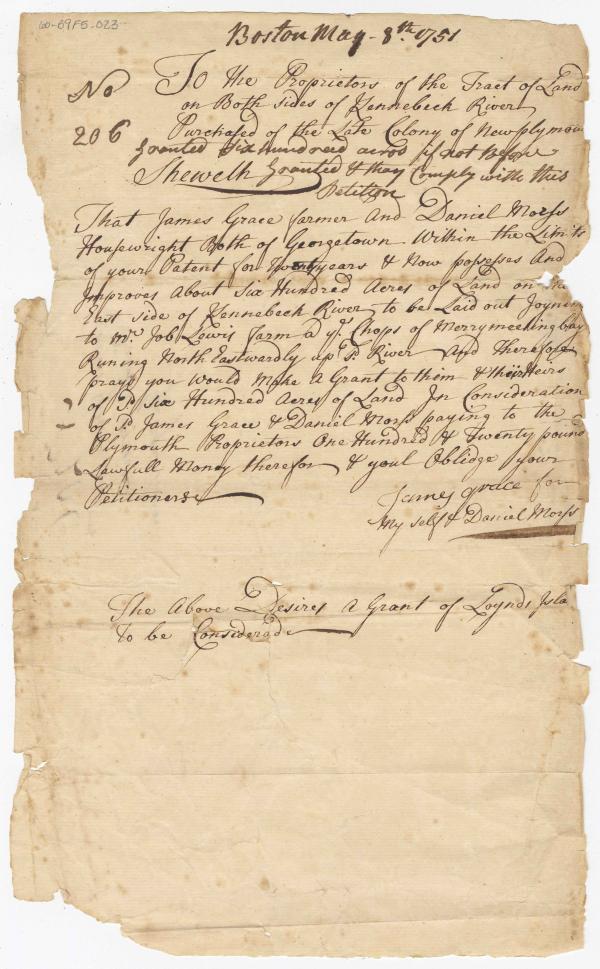 60-69F5-023
Boston May - 8th 1751
No
206
To the Proprietors of the Tract of Land
on Both sides of Kennebeck River
Purchased of the Late Colony of Newplymou
Granted Six hundreed acres if not Before
Sheweth Granted & thay Comply with this
Petition
That James Grace farmer And Daniel Morss
Housewright Both of Georgetown Within the Limits
of your Patent for years & Now posesses And
Improves About Six Hundred Acres of Land on the
East side of Kennebeck River to be Laid out Joyning
to Mr. Job Lewis farm a ye. Chops of Merrymeeting bay
Runing North Eastwardly up sd. River And Therefore
prays you Would Make A Grant to them & their Heirs
of sd. Six Hundred Acres of Land In Consideration
of sd. James Grace & Daniel Morss paying to the
Plymouth Proprietors One Hundred & Twenty pound
Lawfull Money therefor & youl Oblidge your
Petitioners
James Grace for
my self & Daniel Morss
The Above Desires a Grant of Isla
to be Considerade